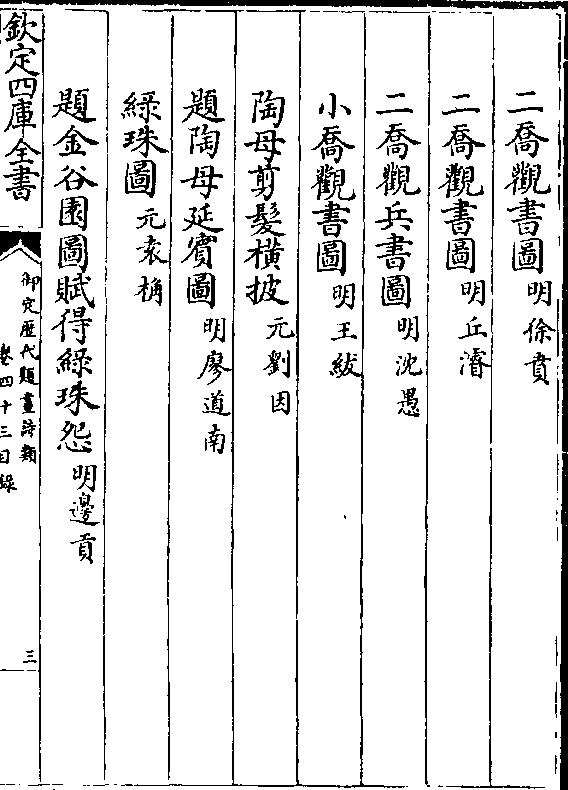 二喬觀書圖 明徐賁
二喬觀書圖 明丘濬
二喬觀兵書圖 明沈愚
小喬觀書圖 明王紱
陶母剪髮橫披 元劉因
題陶母延賓圖 明廖道南
綠珠圖 元袁桷
題金谷園圖賦得綠珠怨 明邊貢
欽定四庫全書
御定歷代題畫詩類
卷四十三目錄
三